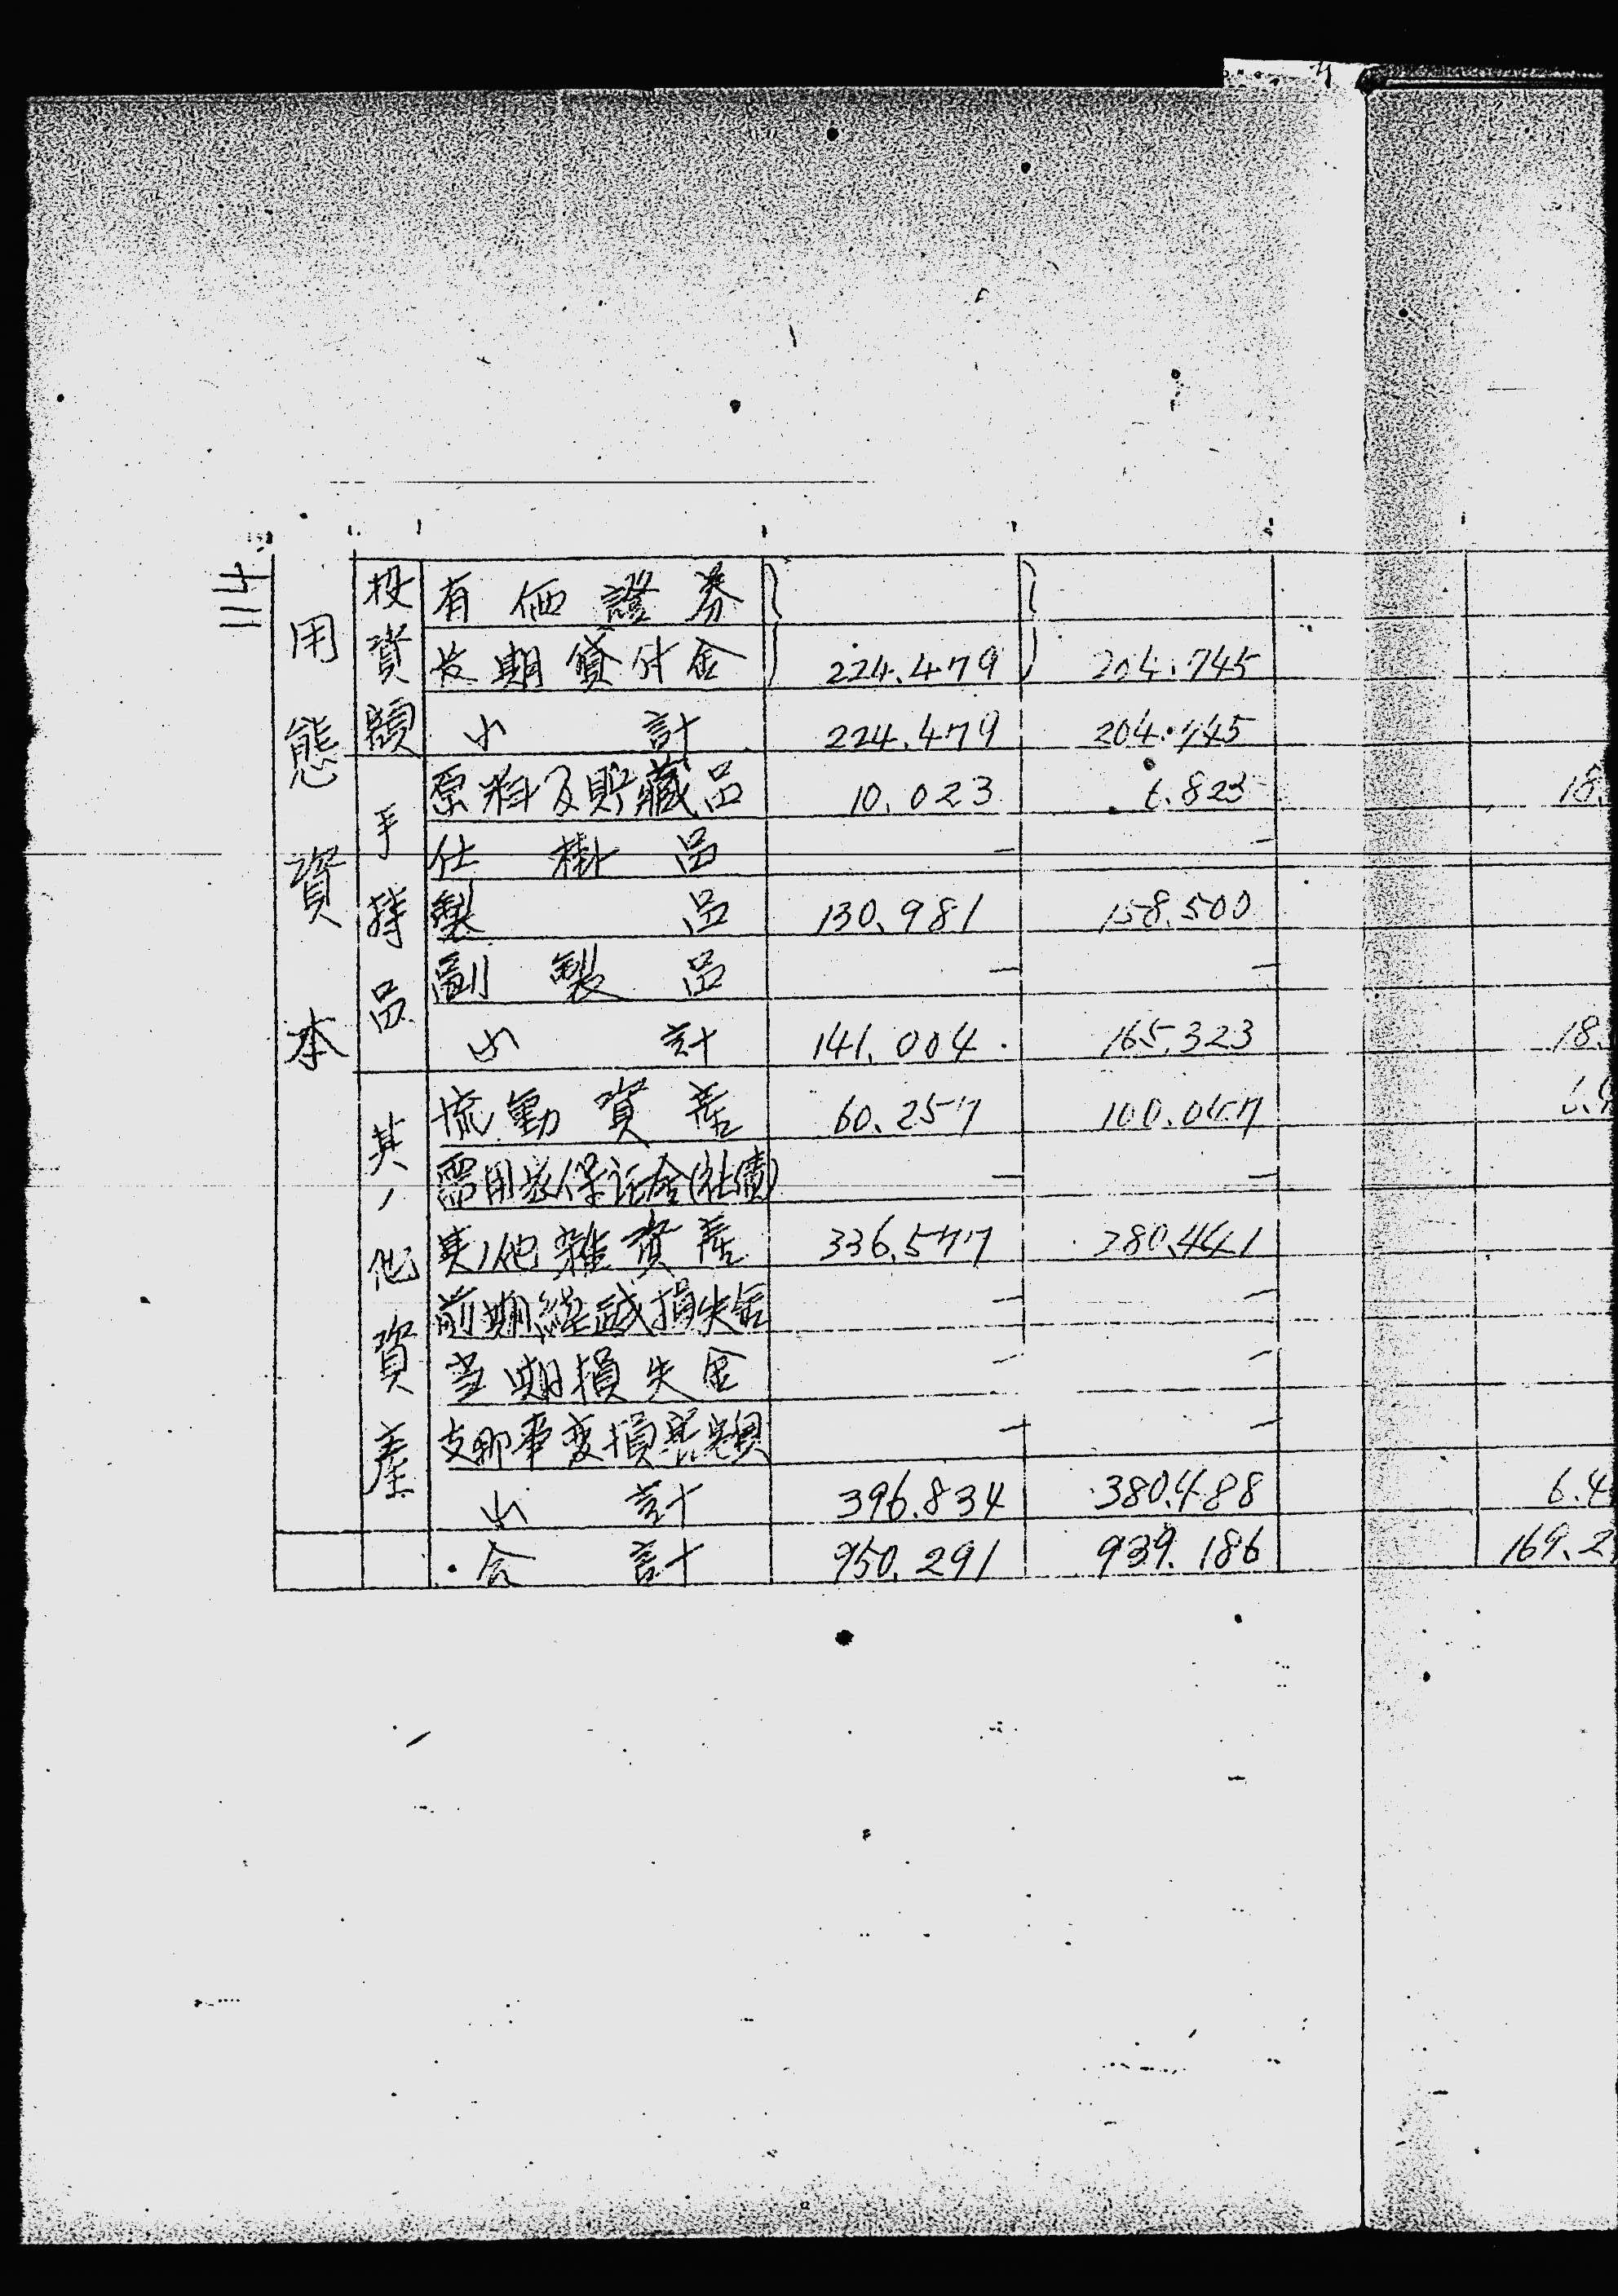 114
用態資本
投資額
有価證券
長期貸付金 224.479 204.745
小計 224.479 204.745
手持品
原料及貯藏品 10.023 6.823 18.
仕掛品 — —
製品 130.981 158.500
副製品 — —
小計 141.004 165.323 18.
其ノ他資産
流動資産 60.257 100.047
需用家保証金(社債) — —
其ノ他雑資産 336.577 280.441
前期繰越損失金 — —
当期損失金 — —
支那事変損害額 — —
小計 396.834 380.488 6.4
合計 950.291 939.186 169.2